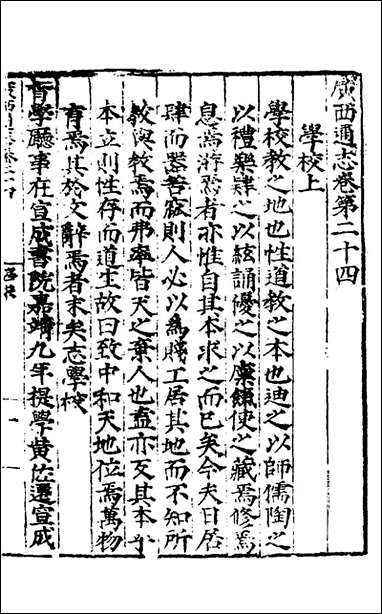 廣西通志卷第二十四
學校上
學校教之地也性道教之本也迪之以師儒陶之
以禮樂肄之以絃誦優之以廩餼使之藏焉修焉
息焉游焉者亦惟自其本求之而已矣今夫日居
肆而器苦窳則人必以為賤工居其地而不知所
教與教焉而弗率皆天之棄人也盍亦反其本乎
本立則性存而道生故曰致中和天地位焉萬物
育焉其於文辭焉者末矣志學校
學廳事在宣成書院嘉靖九年提學黃佐遷宣成